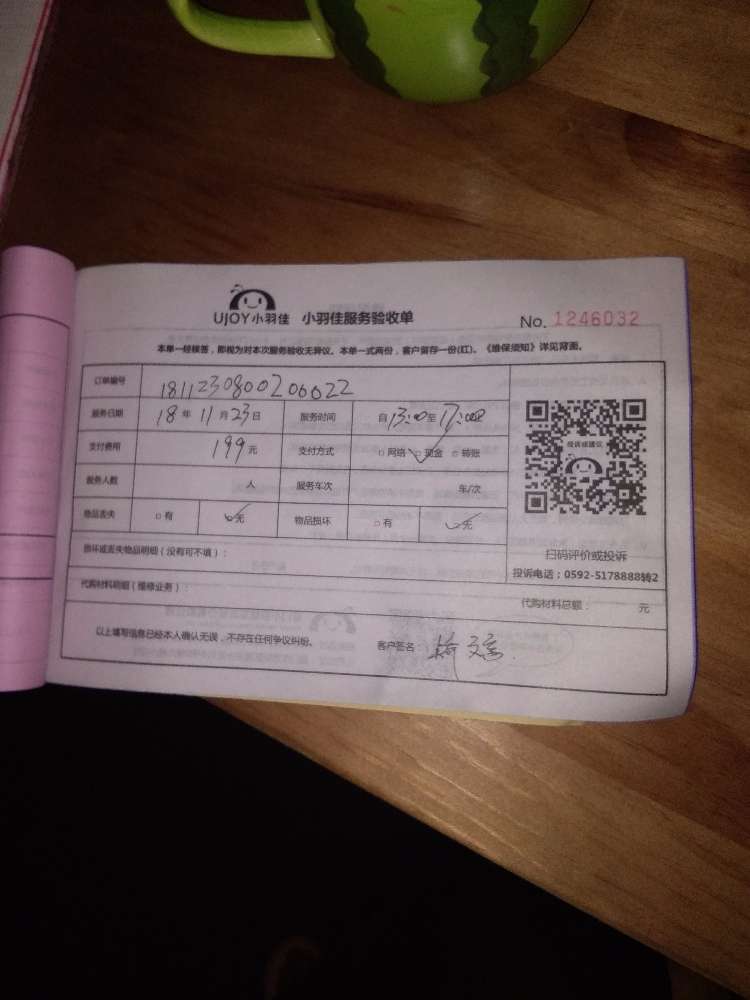 UJOY小羽佳 小羽佳服务验收单 No. 1246032
本单一经核签，即视为对本次服务验收无异议。本单一式两份，客户留存一份(红)。《维保须知》详见背面。
订单编号 1811230800206022
服务日期 18年11月23日 服务时间 自13:00至17:00
支付费用 199元 支付方式 □网络 ✓现金 □转账
服务人数 人 服务车次 车/次
物品丢失 □有 ✓无 物品损坏 □有 ✓无
投诉或建议
扫码评价或投诉
投诉电话：0592-5178888转2
损坏或丢失物品明细（没有可不填）：
代购材料明细（维修业务）： 代购材料总额： 元
以上填写信息已经本人确认无误，不存在任何争议纠纷。 客户签名：